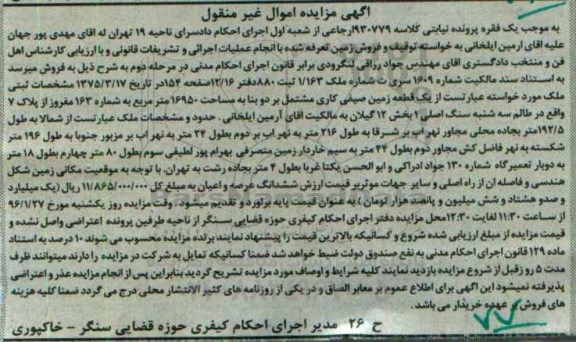 آگهی مزایده اموال غیر منقول
به موجب یک فقره پرونده نیابتی کلاسه ۹۳۰۷۷۹ ارجاعی از شعبه اول اجرای احکام دادسرای ناحیه ۱۹ تهران له اقای مهدی پور جهان
علیه اقای ارمین ایلخانی به خواسته توقیف و فروش زمین تعرفه شده با انجام عملیات اجرائی و تشریفات قانونی و با ارزیابی کارشناس اهل
فن و منتخب دادگستری اقای مهندس جواد رزاقی لنگرودی برابر قانون اجرای احکام مدنی در مرحله دوم به شرح ذیل به فروش میرسد
به استناد سند مالکیت شماره ۱۶۰۹ سری ت شماره ملک ۱/۱۶۳ ثبت ۸۸۰ دفتر ۱۲/۱۶ صفحه ۱۵۴ در تاریخ ۱۳۷۵/۳/۱۷ مشخصات ثبتی
ملک مورد خواسته عبارتست از یک قطعه زمین صیفی کاری مشتمل بر دو بنا به مساحت ۱۶۹۵۰ متر مربع به شماره ۱۶۳ مفروز از پلاک ۷
واقع در طالم سه شنبه سنگ اصلی ۱ بخش ۱۲ گیلان به مالکیت اقای آرمین ایلخانی. حدود و مشخصات ملک عبارتست از شمالا به طول
۱۹۲/۵متر بجاده محلی مجاور نهر اب بر شرقا به طول ۲۱۶ متر به نهر اب بر دوم بطول ۲۴ متر به نهر اب بر مزبور جنوبا به طول ۱۹۶ متر
شکسته به نهر فاضل کش مجاور دوم بطول ۴۴ متر به سیم خاردار زمین متصرفی بهرام پور لطیفی سوم بطول ۸۰ متر چهارم بطول ۱۸ متر
به دیوار تعمیرگاه شماره ۱۳۰ جواد ادراکی و ابو الحسن یکتا غربا بطول ۴ متر بجاده رشت به تهران. با توجه به موقعیت مکانی زمین شکل
هندسی و فاصله ان از راه اصلی و سایر جهات موثر بر قیمت ارزش ششدانگ عرصه و اعیان به مبلغ کل ۱۱/۸۶۵/۰۰۰/۰۰۰ ریال (یک میلیارد
و صدو هشتاد و شش میلیون و پانصد هزار تومان) به عنوان قیمت پایه براورد و تقدیم میشود. وقت مزایده روز یکشنبه مورخ ۹۶/۱/۲۷
از ساعت ۱۱:۳۰ لغایت ۱۲:۳۰ محل مزایده دفتر اجرای احکام کیفری حوزه قضایی سنگر از ناحیه طرفین پرونده اعتراضی واصل نشده و
قیمت مزایده از مبلغ ارزیابی شده شروع و کسانیکه بالاترین قیمت را پیشنهاد نمایند برنده مزایده محسوب می شوند ۱۰ درصد به استناد
ماده ۱۲۹ قانون اجرای احکام مدنی به نفع صندوق دولت ضبط خواهد شد ضمنا کسانیکه تمایل به شرکت در مزایده را دارند میتوانند ظرف
مدت ۵ روز قبل از شروع مزایده بازدید نمایند کلیه شرایط و اوصاف مورد مزایده تشریح گردید بنابراین پس از انجام مزایده عذر و اعتراضی
پذیرفته نمیشود این آگهی برای اطلاع عموم بر معابر الصاق و در یکی از روزنامه های کثیر الانتشار محلی درج می گردد ضمنا کلیه هزینه
های فروش بر عهده خریدار می باشد.
ح ۲۶ مدیر اجرای احکام کیفری حوزه قضایی سنگر - خاکپوری